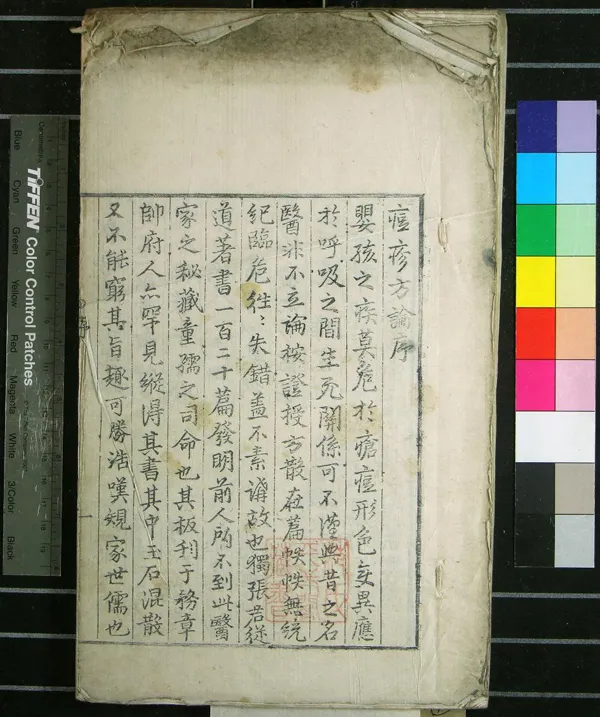 痘疹方論序
嬰孩之疾莫危於瘡痘形色変異應
於呼吸之間生死關係可不謹與昔之名
醫非不立論按證授方散在篇帙帙無統
紀臨危徃〻失錯盖不素講故也獨張君從
道著書一百二十篇發明前人所不到此醫
家之秘藏童孺之司命也其板刋于務章
帥府人亦罕見縱得其書其中玉石混散
又不能窮其旨趣可勝浩嘆䂓家世儒也
序
一
TIFFEN Color Control Patches
Blue
Cyan
Green
Yellow
Red
Magenta
White
3/Color
Black